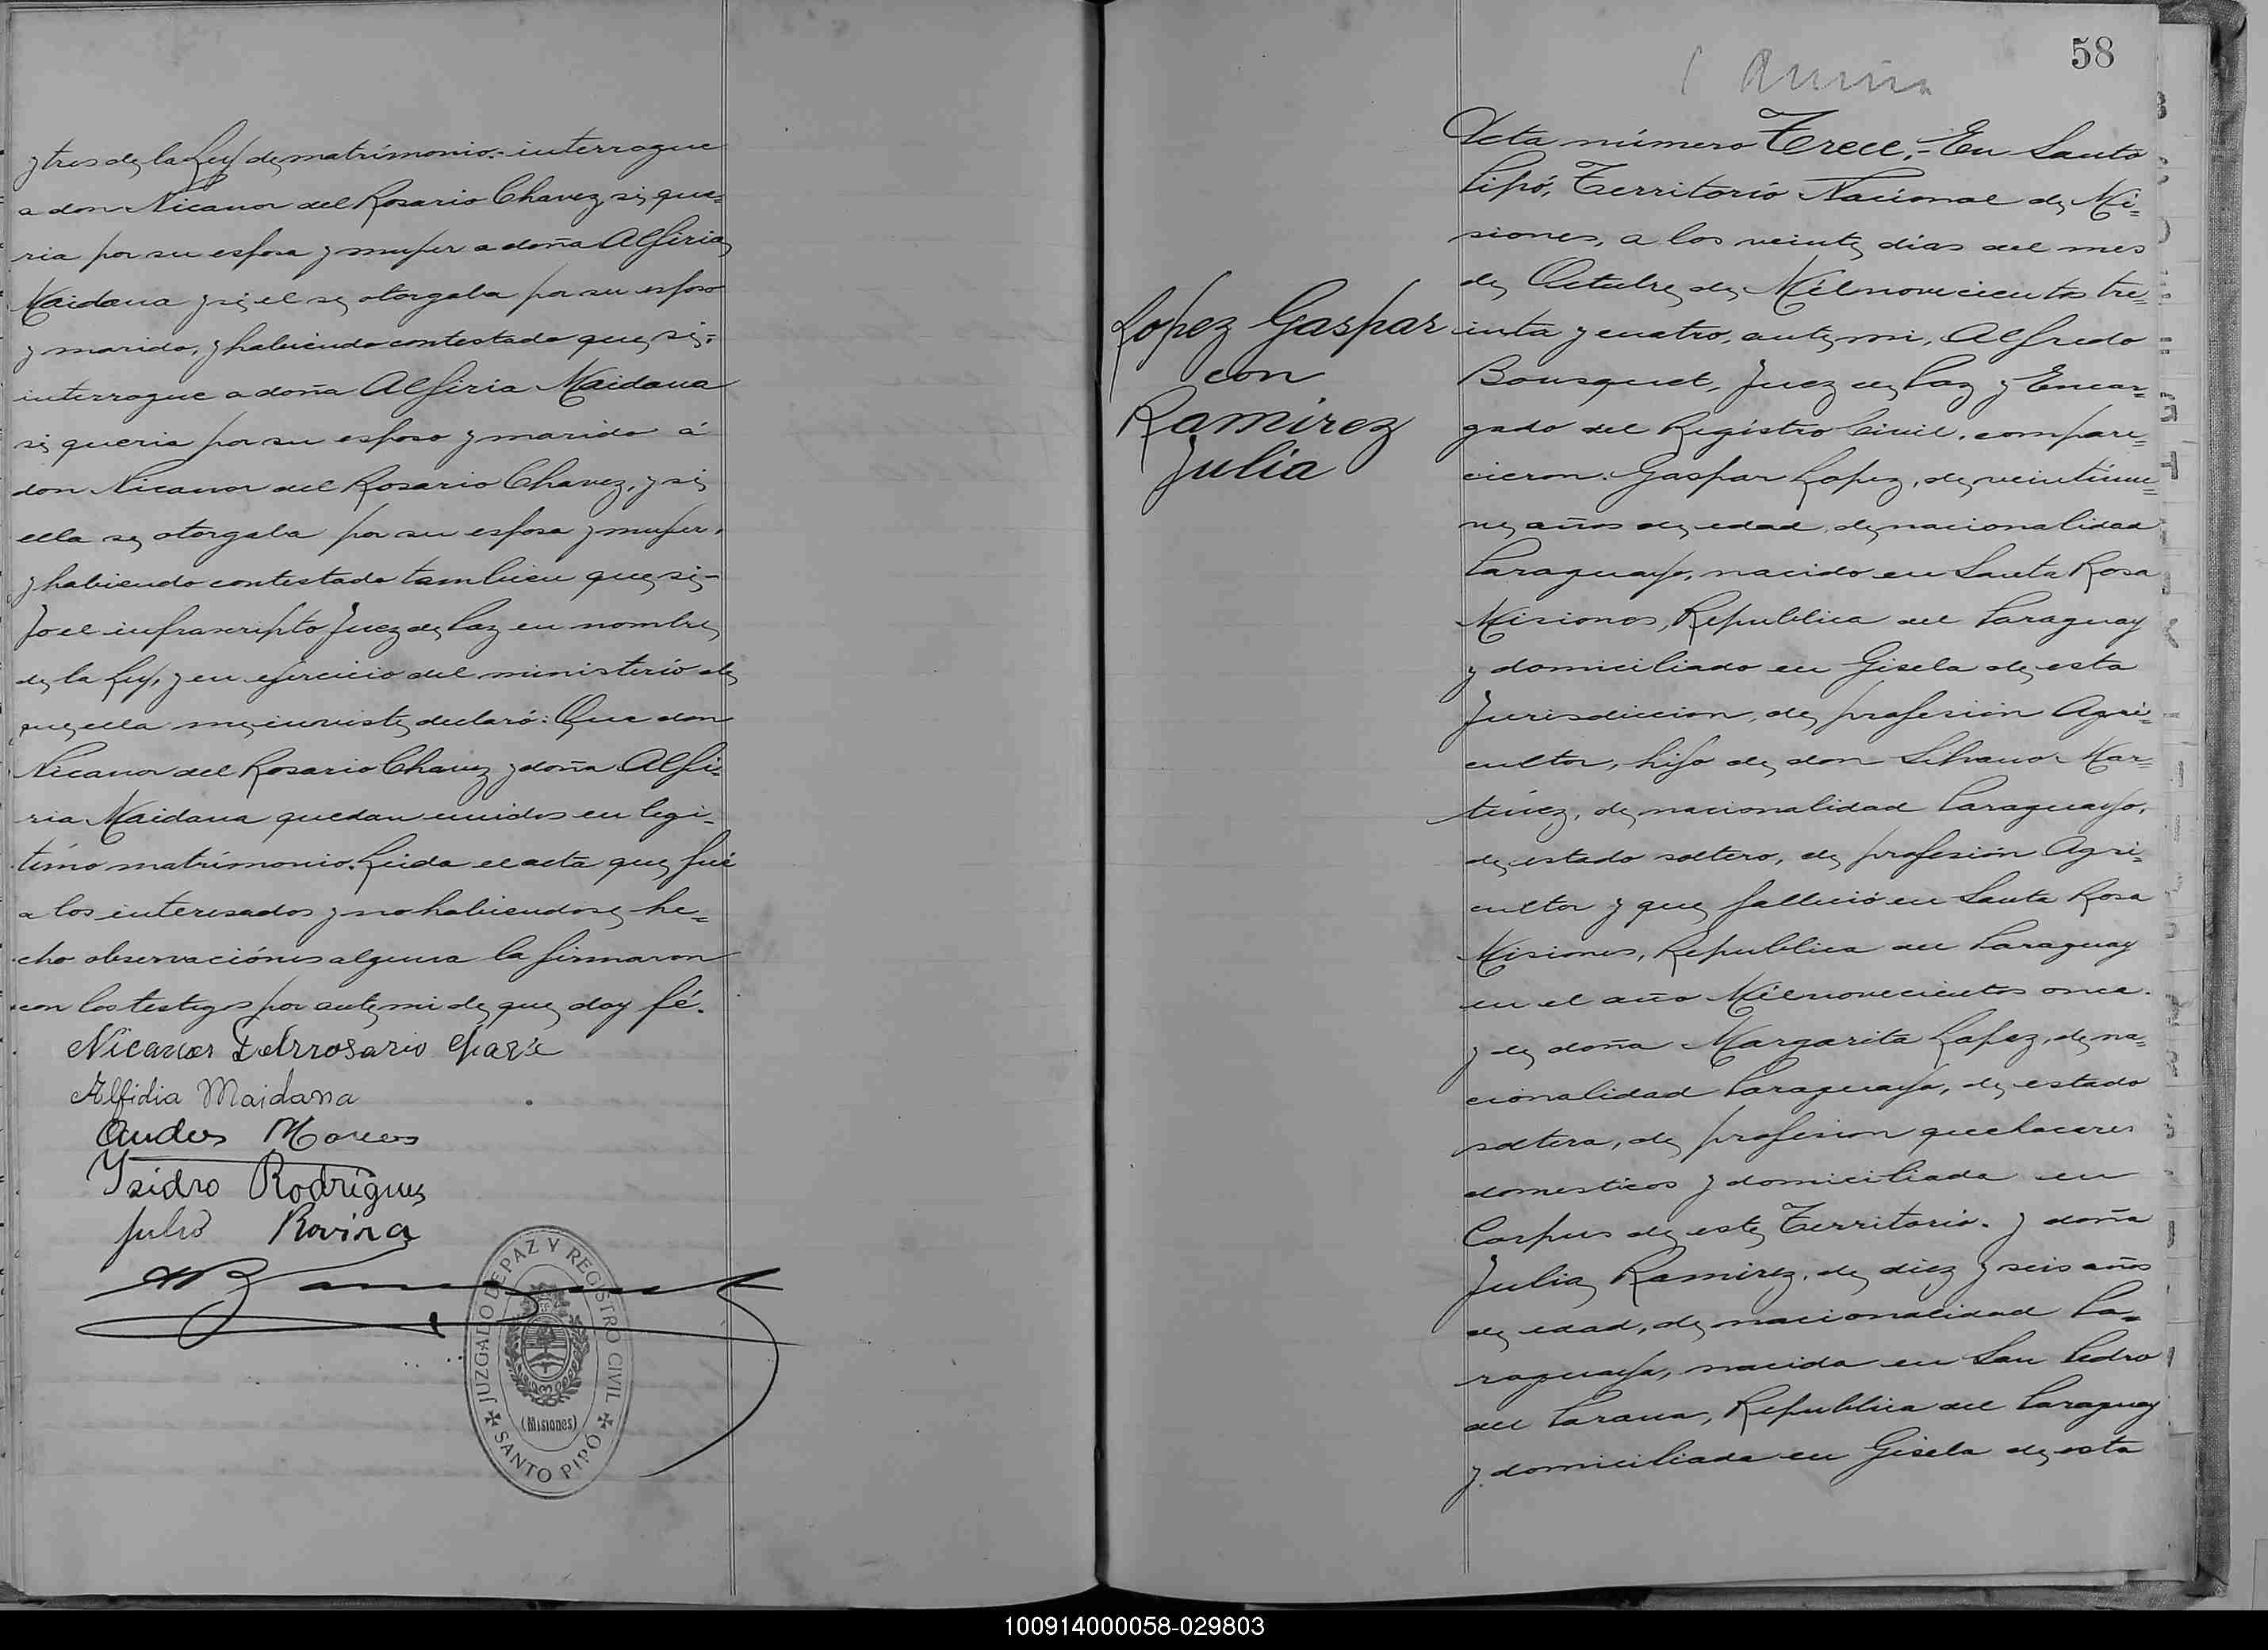 y tres de la Ley de matrimonio.- interrogue
a don Nicanor del Rosario Chavez si que=
ria por su esposa y mujer a doña Alfiria
Maidana y si el se otorgaba por su esposo
y marido, y habiendo contestado que si;-
interrogue a doña Alfiria Maidana
si queria por su esposo y marido á
don Nicanor del Rosario Chavez, y si
ella se otorgaba por su esposa y mujer,
y habiendo contestado tambien que si-
Yo el infrascripto Juez de Paz en nombre
de la Ley, y en ejercicio del ministerio de
que ella me inviste, declaró: Que don
Nicanor del Rosario Chavez y doña Alfi-
ria Maidana quedan unidos en legi-
timo matrimonio. Leida el acta que fué
a los interesados y no habiendose he=
cho observaciónes alguna la firmaron
con los testigos por ante mi de que doy fé.
Nicanor Delrrosario
Alfidia Maidana
Isidro Rodrigues
Julio Rovira
JUZGADO DE PAZ Y REGISTRO CIVIL
(Misiones)
SANTO PIPÓ
58
Lopez Gaspar
con
Ramirez
Julia
Acta número Trece.- En Santo
Pipó, Territorio Nacional de Mi=
siones, a los veinte dias del mes
de Octubre de Milnovecientos tre=
inta y cuatro, ante mi, Alfredo
Bousquet, Juez de Paz y Encar=
gado del Registro Civil, compare=
cieron: Gaspar Lopez, de veintinue=
ve años de edad, de nacionalidad
Paraguayo, nacido en Santa Rosa
Misiones, Republica del Paraguay
y domiciliado en Gisela de esta
Jurisdiccion, de profesión Agri=
cultor, hijo de don Silvano Mar=
tinez, de nacionalidad Paraguayo,
de estado soltero, de profesión Agri=
cultor y que falleció en Santa Rosa
Misiones, Republica del Paraguay
en el año Milnovecientos once.
y de doña Margarita Lopez, de na=
cionalidad Paraguaya, de estado
soltera, de profesion quehaceres
domesticos y domiciliada en
Corpus de este Territorio. y doña
Julia Ramirez, de diez y seis años
de edad, de nacionalidad Pa=
raguaya, nacida en San Pedro
del Parana, Republica del Paraguay
y domiciliada en Gisela de esta
100914000058-029803